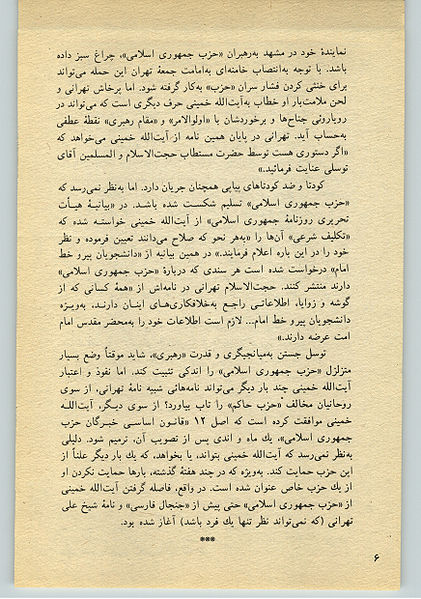 نمایندهٔ خود در مشهد به‌رهبران «حزب جمهوری اسلامی»، چراغ سبز داده
باشد. با توجه به‌انتصاب خامنه‌ای به‌امامت جمعهٔ تهران این حمله می‌تواند
برای خنثی کردن فشار سران «حزب» به‌کار گرفته شود. اما پرخاش تهرانی و
لحن ملامت‌بار او خطاب به‌آیت‌الله خمینی حرف دیگری است که می‌تواند در
رویاروئی جناح‌ها و برخوردشان با «اولوالامر» و «مقام رهبری» نقطهٔ عطفی
به‌حساب آید. تهرانی در پایان همین نامه از آیت‌الله خمینی می‌خواهد که
«اگر دستوری هست توسط حضرت مستطاب حجت‌الاسلام و المسلمین آقای
توسلی عنایت فرمائید.»
کودتا و ضد کودتاهای پیاپی همچنان جریان دارد. اما به‌نظر نمی‌رسد که
«حزب جمهوری اسلامی» تسلیم شکست شده باشد. در «بیانیهٔ هیأت
تحریری روزنامهٔ جمهوری اسلامی» از آیت‌الله خمینی خواسته شده که
«تکلیف شرعی» آن‌ها را «به‌هر نحو که صلاح می‌دانند تعیین فرموده و نظر
خود را در این باره اعلام فرمایند.» در همین بیانیه از «دانشجویان پیرو خط
امام» درخواست شده است هر سندی که دربارهٔ «حزب جمهوری اسلامی»
دارند منتشر کنند. حجت‌الاسلام تهرانی در نامه‌اش از «همهٔ کسانی که از
گوشه و زوایا، اطلاعاتـی راجـع به‌خلافکاری‌هـای اینـان دارنـد، به‌ویـژه
دانشجویان پیرو خط امام... لازم است اطلاعات خود را به‌محضر مقدس امام
امت عرضه دارند.»
توسل جستن به‌میانجیگری و قدرت «رهبری»، شاید موقتاً وضع بسیار
متزلزل «حزب جمهوری اسلامی» را اندکی تثبیت کند. اما نفوذ و اعتبار
آیت‌الله خمینی چند بار دیگر می‌تواند نامه‌هائی شبیه نامهٔ تهرانی، از سوی
روحانیان مخالف «حزب حاکم» را تاب بیاورد؟ از سوی دیگـر، آیت‌اللـه
خمینی موافقت کرده است که اصل ۱۲ «قانـون اساسـی خبرگان حزب
جمهوری اسلامی»، یك ماه و اندی پس از تصویب آن، ترمیم شود. دلیلی
به‌نظر نمی‌رسد که آیت‌الله خمینی بتواند، یا بخواهد، که یك بار دیگر علناً از
این حزب حمایت کند. به‌ویژه که در چند هفتهٔ گذشته، بارها حمایت نکردن او
از یك حزب خاص عنوان شده است. در واقع، فاصله گرفتن آیت‌الله خمینی
از «حزب جمهوری اسلامی» حتی پیش از «جنجال فارسی» و نامهٔ شیخ علی
تهرانی (که نمی‌تواند نظر تنها یك فرد باشد) آغاز شده بود.
***
۶